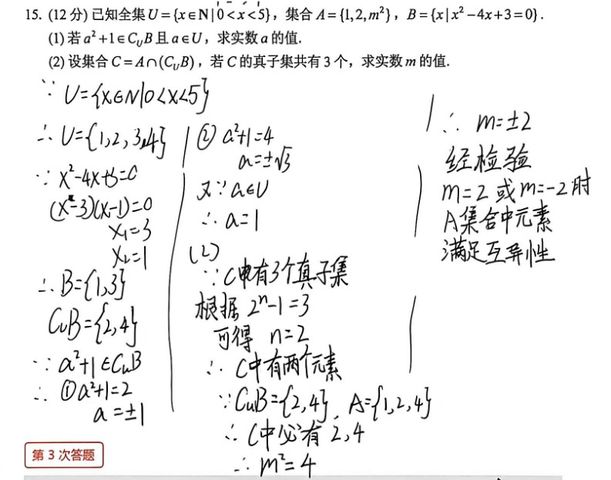 15. (12分) 已知全集 U={x∈N|0<x<5}, 集合 A={1,2,m²}, B={x|x²-4x+3=0}.
(1) 若 a²+1∈C_UB 且 a∈U, 求实数 a 的值.
(2) 设集合 C=A∩(C_UB), 若 C 的真子集共有 3 个, 求实数 m 的值.
∵ U={x∈N|0<x<5}
∴ U={1,2,3,4}
∵ x²-4x+3=0
(x-3)(x-1)=0
x₁=3
x₂=1
∴ B={1,3}
C_UB={2,4}
∵ a²+1∈C_UB
∴ ①a²+1=2
a=±1
② a²+1=4
a=±√3
又∵a∈U
∴ a=1
(2)
∵C中有3个真子集
根据 2ⁿ-1=3
可得 n=2
∴ C中有两个元素
∵C_UB={2,4}, A={1,2,4}
∴C中必有 2,4
∴ m²=4
∴ m=±2
经检验
m=2 或 m=-2时
A集合中元素
满足互异性
第 3 次答题